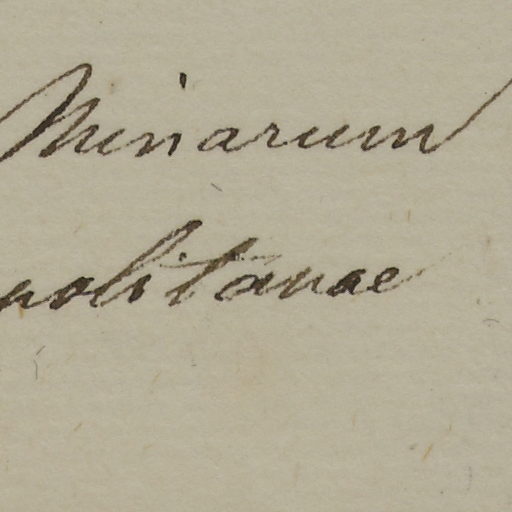 Minarum
politanae